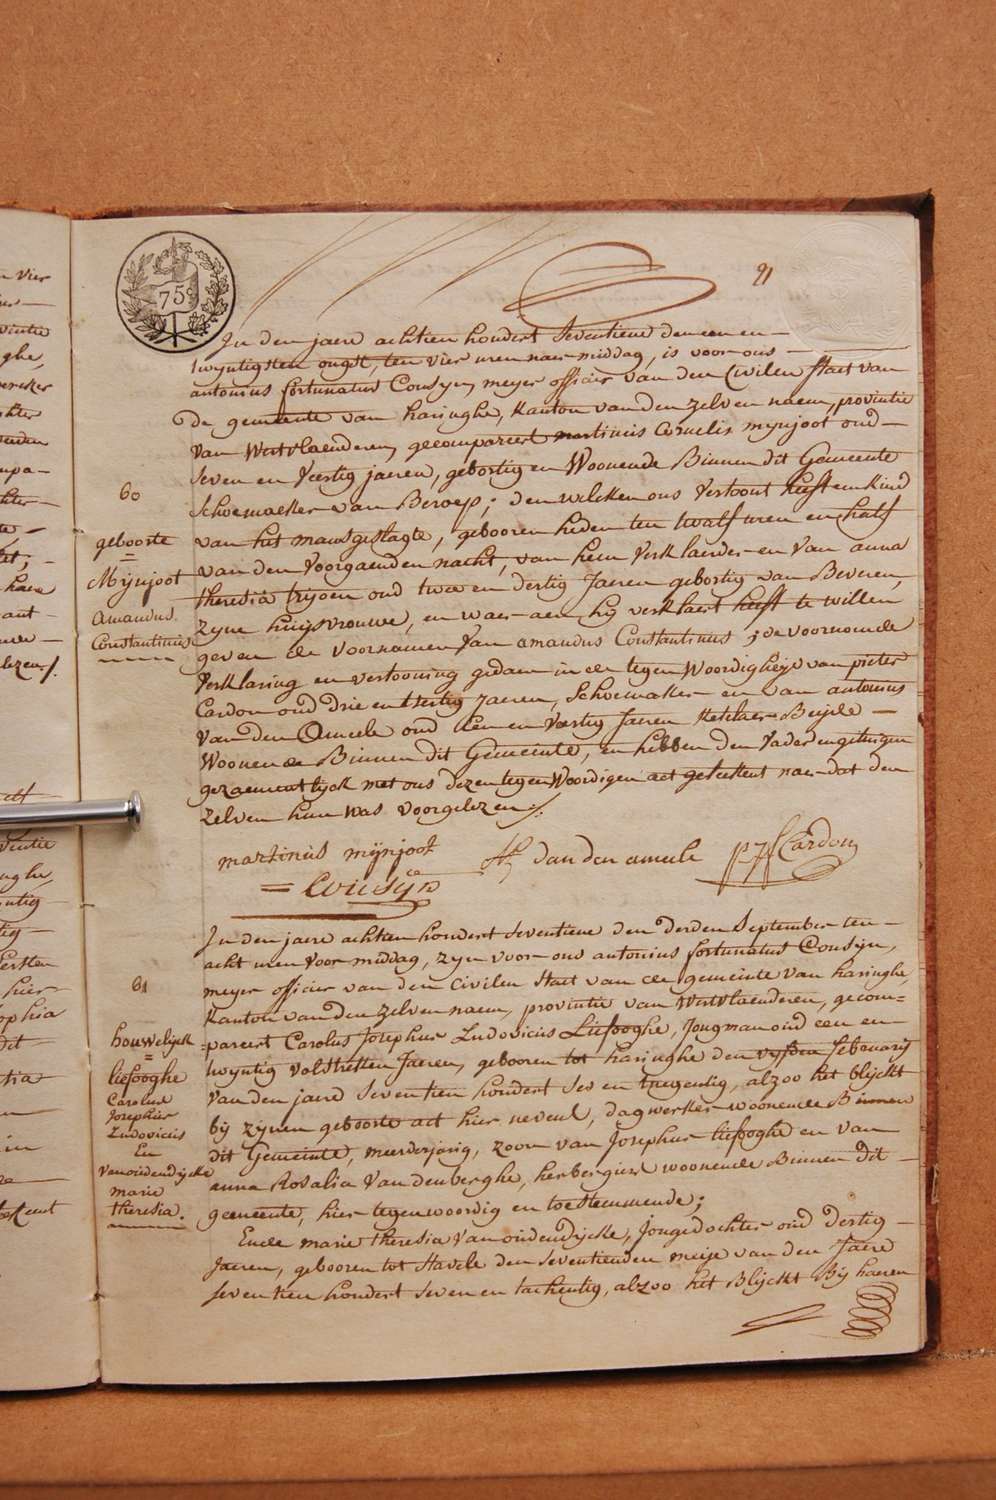 75 c
21
In den jaere achtien hondert seventiene den een en
twyntigsten ougst, ten vier uren naer middag, is voor ons
antonius fortunatus Cousyn, meyer officier van den Civilen staet van
de gemeente van haringhe, kanton van den zelven naem, provintie
van Westvlaenderen, gecompareert martinus Cornelis mynjoot oud
seven en Veertig jaeren, gebortig en Woonende Binnen dit Gemeente
schoemaeker van Beroep; den welcken ons Vertoont heeft een kind
van het mansgeslagte, gebooren heden ten twalf uren en half
van den voorgaenden nacht, van hem Verklaerder en van anna
theresia trijoen oud twee en dertig Jaeren gebortig van Beveren,
zyne huysvrouwe, en waer aen hy verklaert heeft te willen
geven de voornamen van amandus Constantinus; de voornoemde
Verklaring en vertooning gedaen in de tegenwoordigheyd van pieter
Cardon oud drie en Jaeren, schoemaker en van antonius
van den Ameele oud een en Jaeren Ketelaer Beyde
Woonende Binnen dit Gemeente, en hebben den Vader en getuigen
gezaementlyck met ons dezen tegenwoordigen act geteekent naer dat den
zelven hun was voorgelezen ./.
60
geboorte
=
Mijnjoot
Amandus
Constantinus
martinus mijnjoot
van den ameele
Cardon
= Cousyn
In den jaere achtien hondert seventiene den derden September ten
acht uren voor middag, zyn voor ons antonius fortunatus Cousyn,
meyer officier van den Civilen staet van de gemeente van haringhe,
kanton van den zelven naem, provintie van Westvlaenderen, gecom=
=pareert Carolus Josephus Ludovicus Liefooghe, Jongman oud een en
twyntig volstrekten Jaeren, gebooren tot haringhe den vyfden febouarij
van den jaere seventien hondert ses en tnegentig, alzoo het blyckt
bij zynen geboorte act hier neveul, dagwerker woonende Binnen
dit Gemeente, meerderjarig, zoon van Josephus liefooghe en van
anna Rosalia Vandenberghe, herbergier woonende Binnen dit
gemeente, hier tegenwoordig en toestemmende;
Ende marie theresia Vanoudendycke, Jongedochter oud dertig
Jaeren, gebooren tot Stavele den seventienden meije van den Jaere
seventien hondert seven en tachentig, alzoo het Blyckt Bij haeren
61
houwelijck
=
liefooghe
Carolus
Josephus
Ludovicus
En
Vanoudendijcke
marie
theresia.